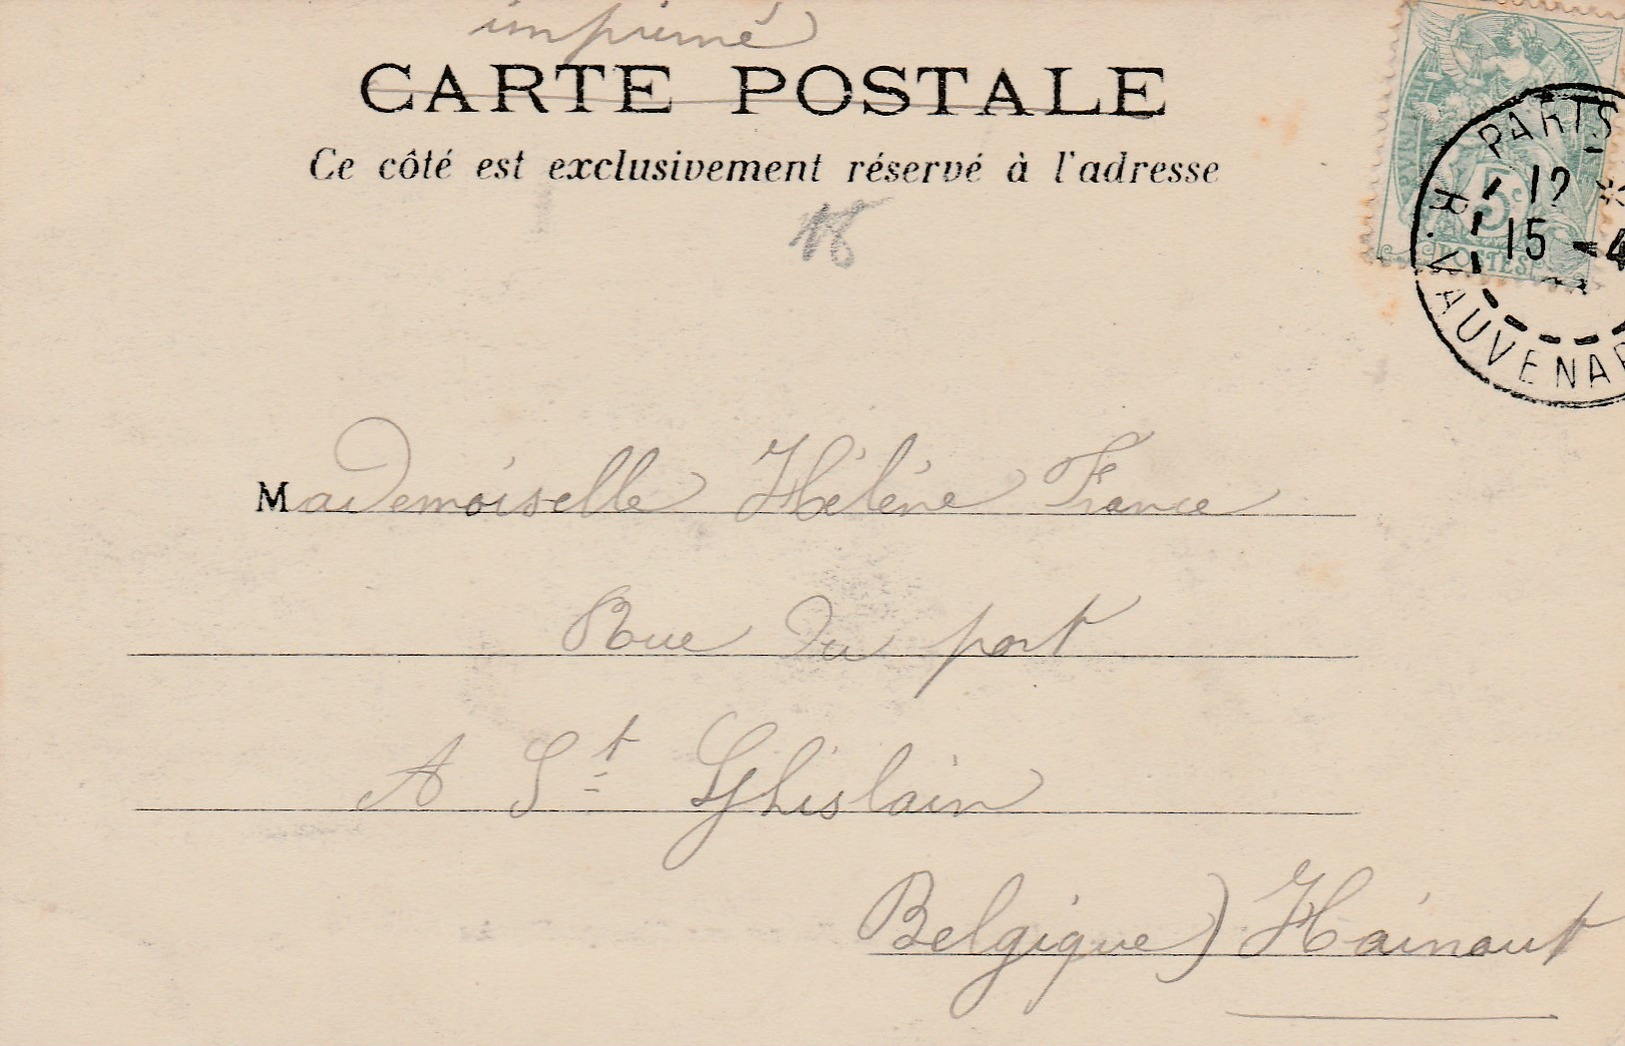 imprimé
CARTE POSTALE
Ce côté est exclusivement réservé à l'adresse
18
5c
POSTES
PARIS
12
15 -4
R. VAUVENAR
Mademoiselle Hélène France
Rue du port
A St Ghislain
Belgique) Hainaut